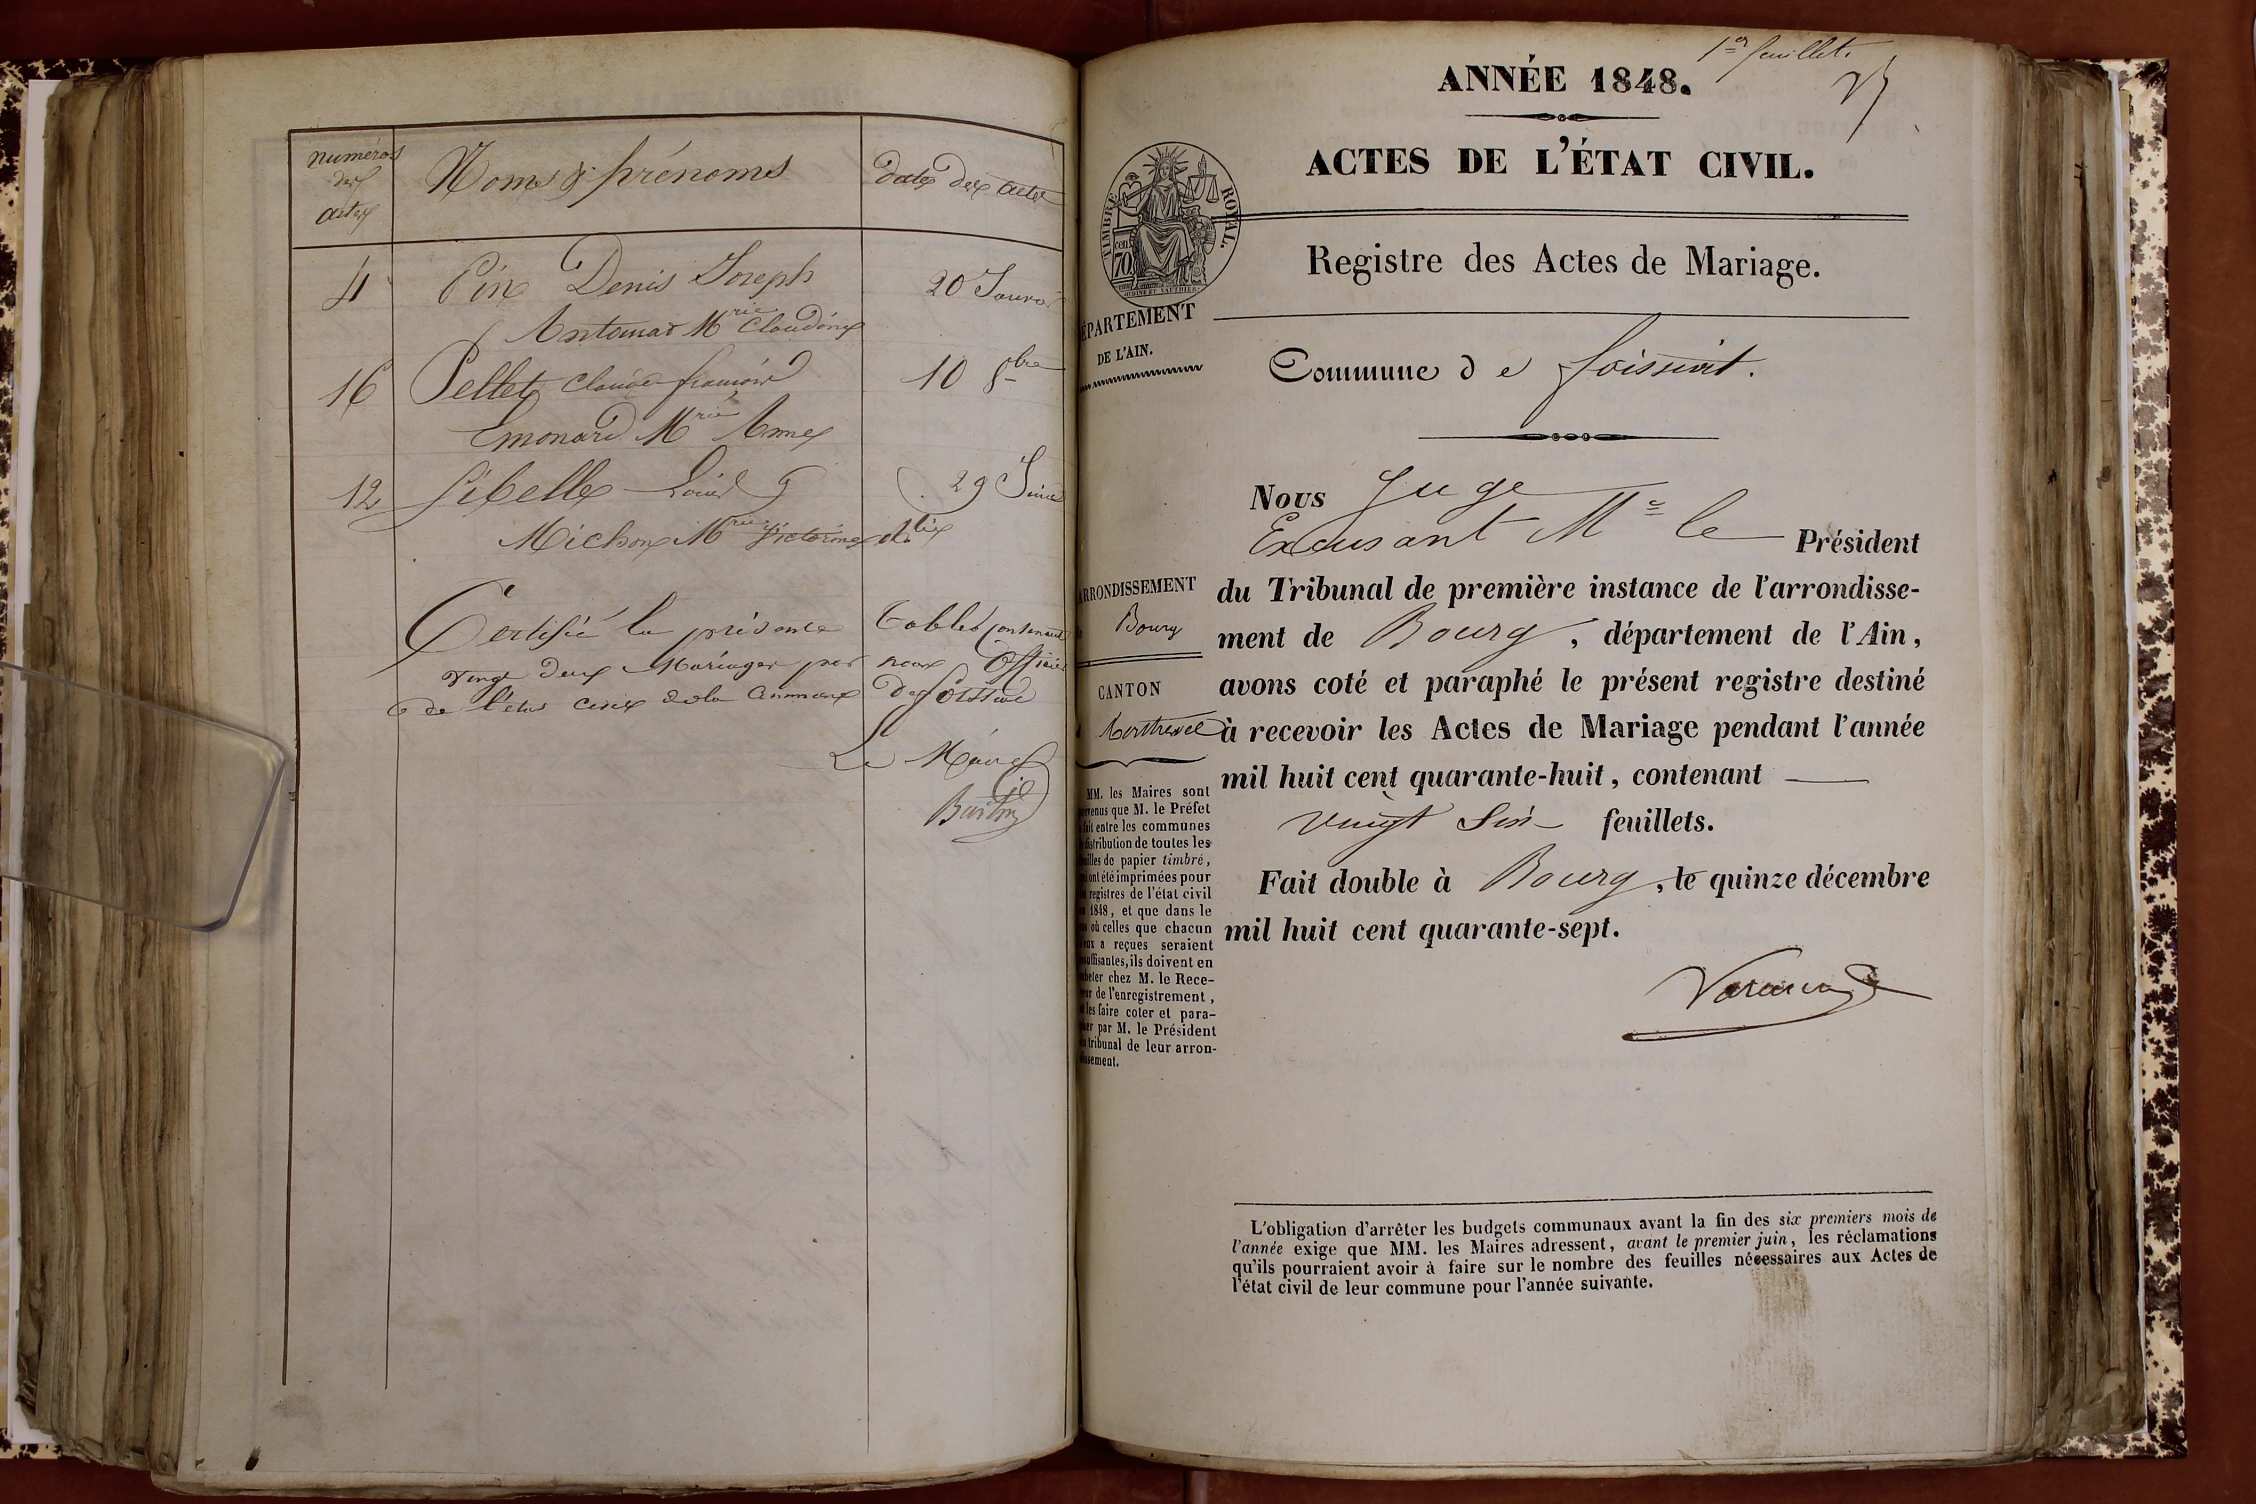 numéros
des
actes
Noms & prénoms
dates des actes
4
Pin Denis Joseph
20 Janvier
Antoinat Mrie Claudine
16
Pellet Claude françois
10 8bre
Emonard Mrie Anne
12
Sibelle Louis
29 Juin
Michon Mrie Victorine
Certifié la présente Table contenant
vingt deux Mariages par nous Officier
de l'état civil de la Commune de foissiat
Le Maire
1er feuillet.
ANNÉE 1848.
ACTES DE L'ÉTAT CIVIL.
TIMBRE ROYAL.
cen.
70
Registre des Actes de Mariage.
ÉPARTEMENT
DE L'AIN.
Commune de foissiat.
Nous Juge
Excusant Mr le Président
du Tribunal de première instance de l'arrondisse-
ment de Bourg, département de l'Ain,
avons coté et paraphé le présent registre destiné
à recevoir les Actes de Mariage pendant l'année
mil huit cent quarante-huit, contenant
vingt Six feuillets.
Fait double à Bourg, le quinze décembre
mil huit cent quarante-sept.
ARRONDISSEMENT
Bourg
CANTON
Montrevel
MM. les Maires sont
venus que M. le Préfet
fait entre les communes
distribution de toutes les
uilles de papier timbré,
ont été imprimées pour
registres de l'état civil
1848, et que dans le
où celles que chacun
eux a reçues seraient
suffisantes, ils doivent en
heter chez M. le Rece-
eur de l'enregistrement,
les faire coter et para-
her par M. le Président
tribunal de leur arron-
issement.
L'obligation d'arrêter les budgets communaux avant la fin des six premiers mois de
l'année exige que MM. les Maires adressent, avant le premier juin, les réclamations
qu'ils pourraient avoir à faire sur le nombre des feuilles nécessaires aux Actes de
l'état civil de leur commune pour l'année suivante.